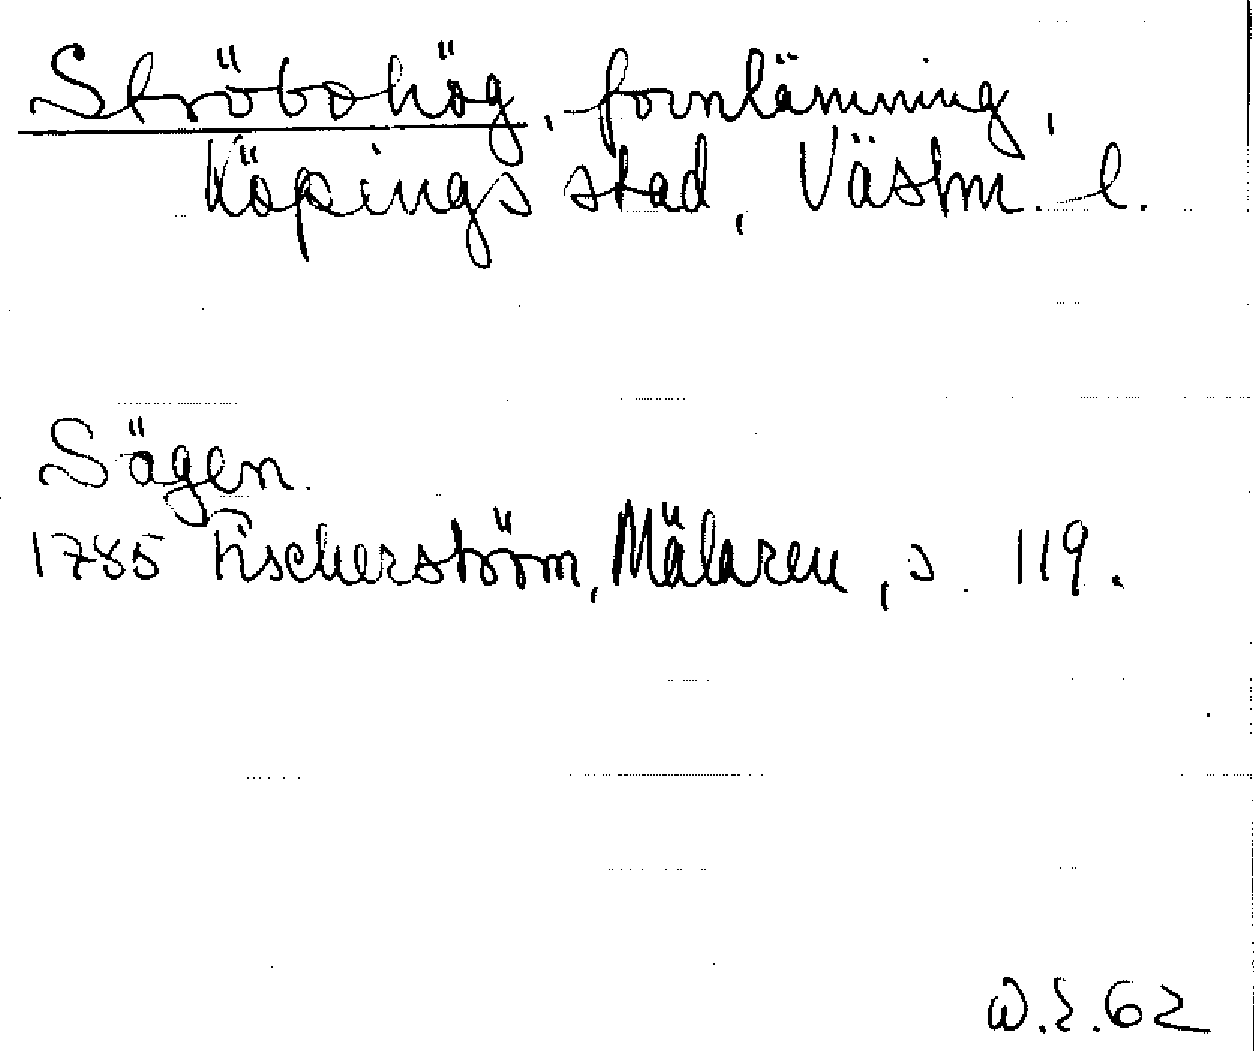 Ströbohög, fornlämning,
Köpings stad, Västm. l.
Sägen.
1785 Fischerström, Mälaren, s. 119.
W.E.62